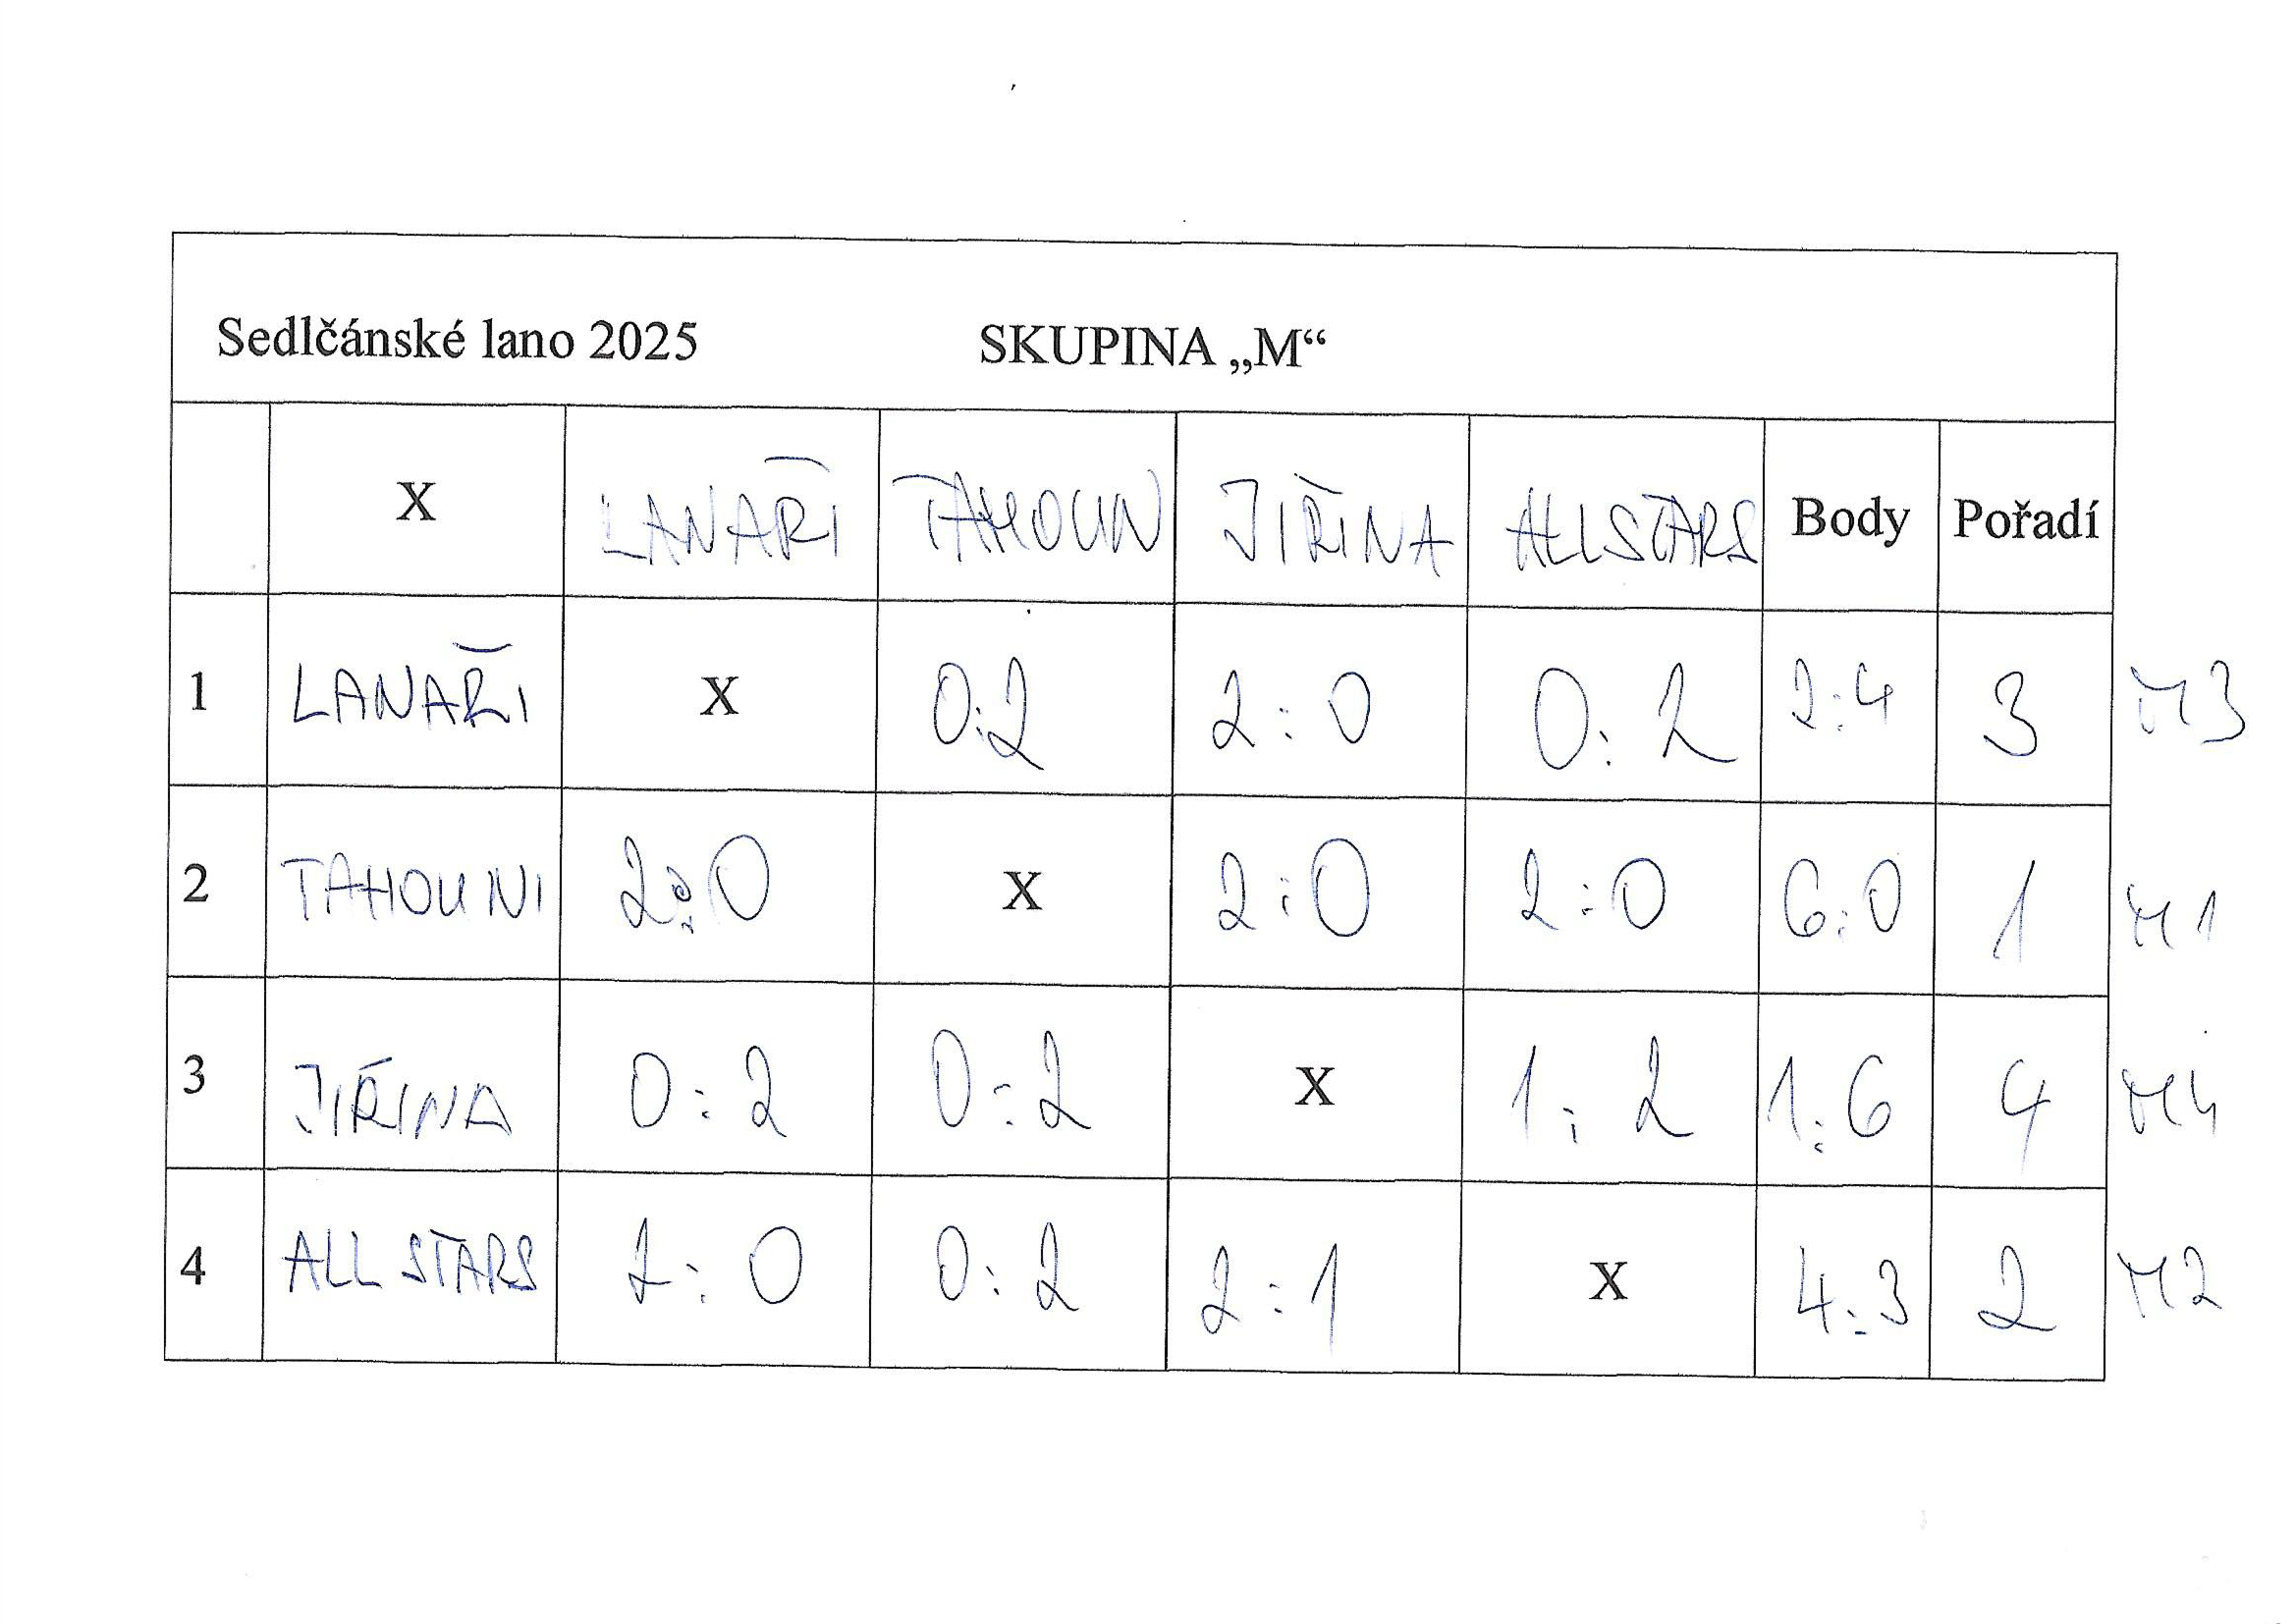 Sedlčánské lano 2025 SKUPINA „M“
X LANAŘI TAHOUN JIŘINA ALLSTARS Body Pořadí
1 LANAŘI X 0:2 2:0 0:2 2:4 3 M3
2 TAHOUNI 2:0 X 2:0 2:0 6:0 1 M1
3 JIŘINA 0:2 0:2 X 1:2 1:6 4 M4
4 ALL STARS 2:0 0:2 2:1 X 4:3 2 M2